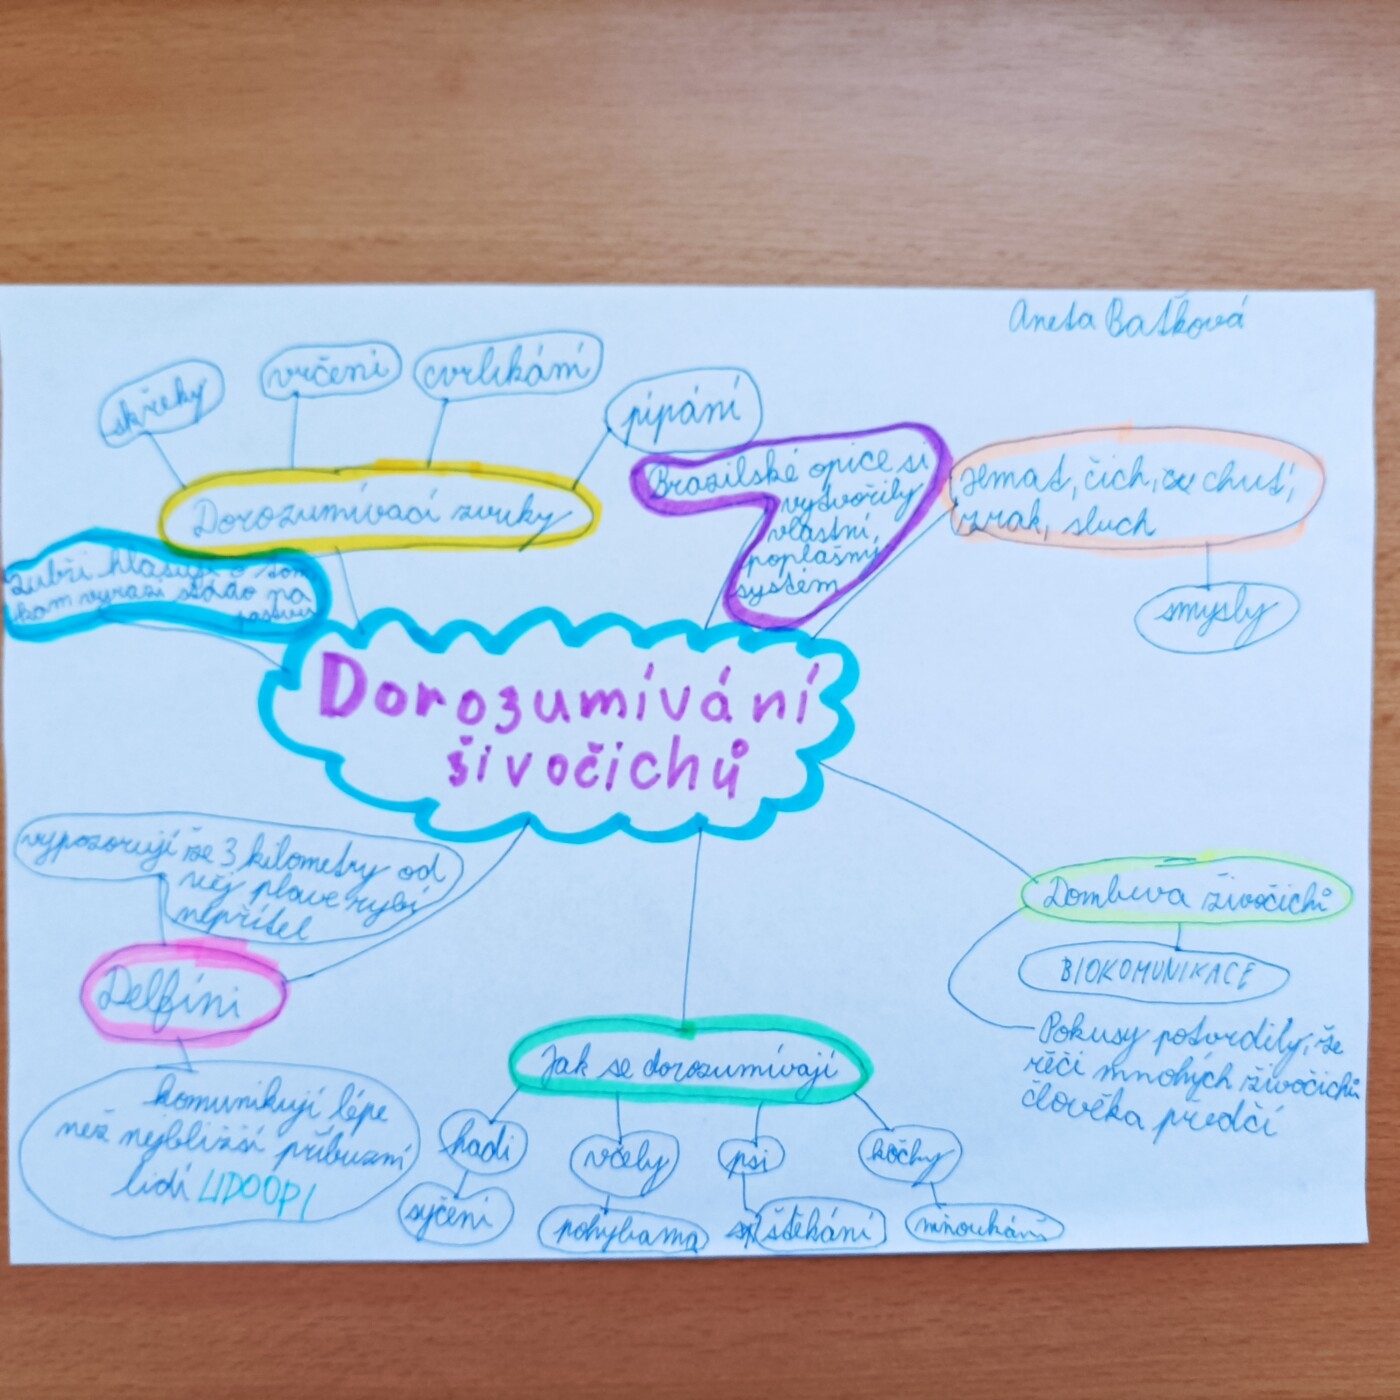 Aneta Baťková
skřeky
vrčení
cvrlikání
pípání
Dorozumívací zvuky
Brazilské opice si
vytvořily
vlastní,
poplašný
systém
Hmat, čich, chuť,
zrak, sluch
smysly
Zubři hlasují o tom
kam vyrazí stádo na
pastvu
Dorozumívání
živočichů
vypozorují že 3 kilometry od
něj plave rybí
nepřítel
Delfíni
komunikují lépe
než nejbližší příbuzní
lidí LIDOOPI
Jak se dorozumívají
hadi
včely
psi
kočky
syčení
pohybama
štěkání
mňoukání
Domluva živočichů
BIOKOMUNIKACE
Pokusy potvrdily, že
řěči mnohých živočichů
člověka předčí